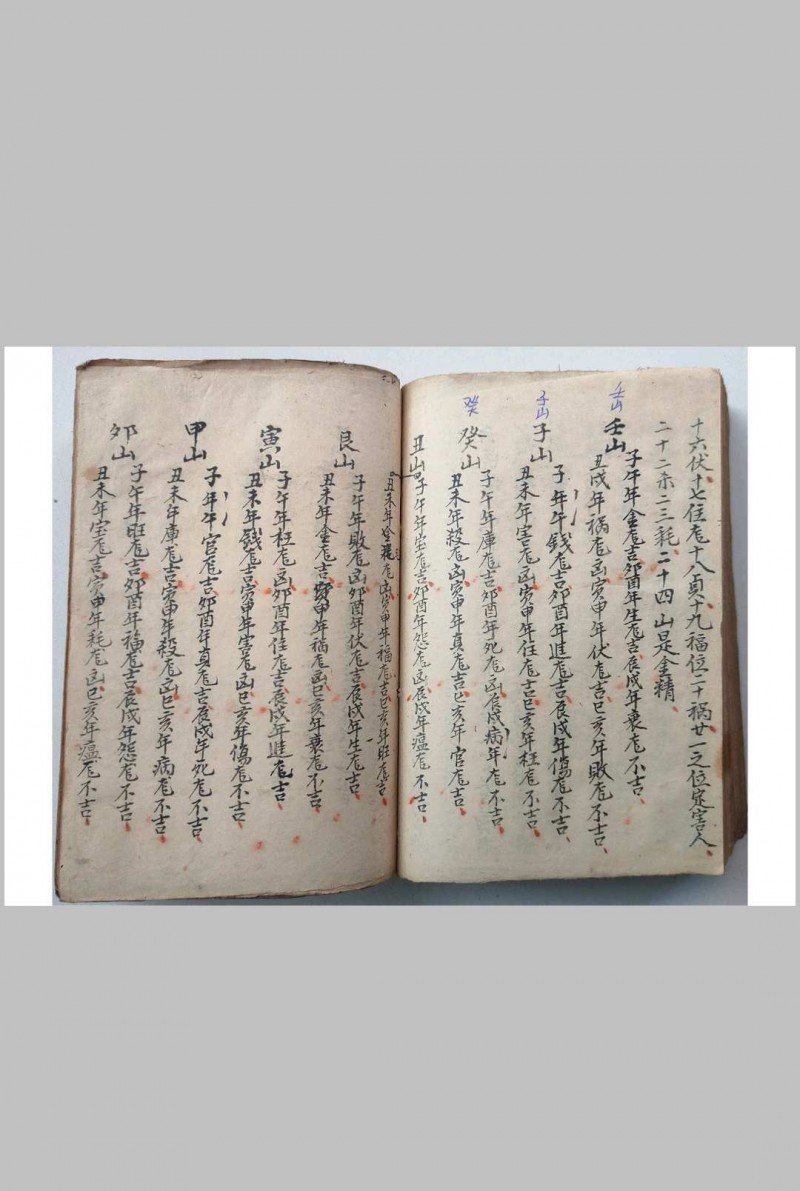 十六伏十七住庅十八貞十九福位二十禍廿一之位定害人
二十二杀二三耗二十四山是金精
壬山
壬山
子午年金庅吉卯酉年生庅吉辰戌年衰庅不吉
丑戌年禍庅凶寅申年伏庅吉巳亥年敗庅不吉
子山
子山
子午年錢庅吉卯酉年進庅吉辰戌年傷庅不吉
丑未年害庅凶寅申年住庅吉巳亥年枉庅不吉
癸
癸山
子午年庫庅吉卯酉年死庅凶辰戌病年庅不吉
丑未年殺庅凶寅申年真庅吉巳亥年官庅吉
丑山
子午年宝庅吉卯酉年怨庅凶辰戌年瘟庅不吉
丑未年耗庅凶寅申年福庅吉巳亥年旺庅吉
艮山
子午年敗庅凶卯酉年伏庅吉辰戌年生庅吉
丑未年金庅吉寅申年禍庅凶巳亥年衰庅不吉
寅山
子午年枉庅凶卯酉年住庅吉辰戌年進庅吉
丑未年錢庅吉寅申年害庅凶巳亥年傷庅不吉
甲山
子年午官庅吉卯酉年真庅吉辰戌年死庅不吉
丑未年庫庅吉寅申年殺庅凶巳亥年病庅不吉
卯山
子午年旺庅吉卯酉年福庅吉辰戌年怨庅不吉
丑未年宝庅吉寅申年耗庅凶巳亥年瘟庅不吉